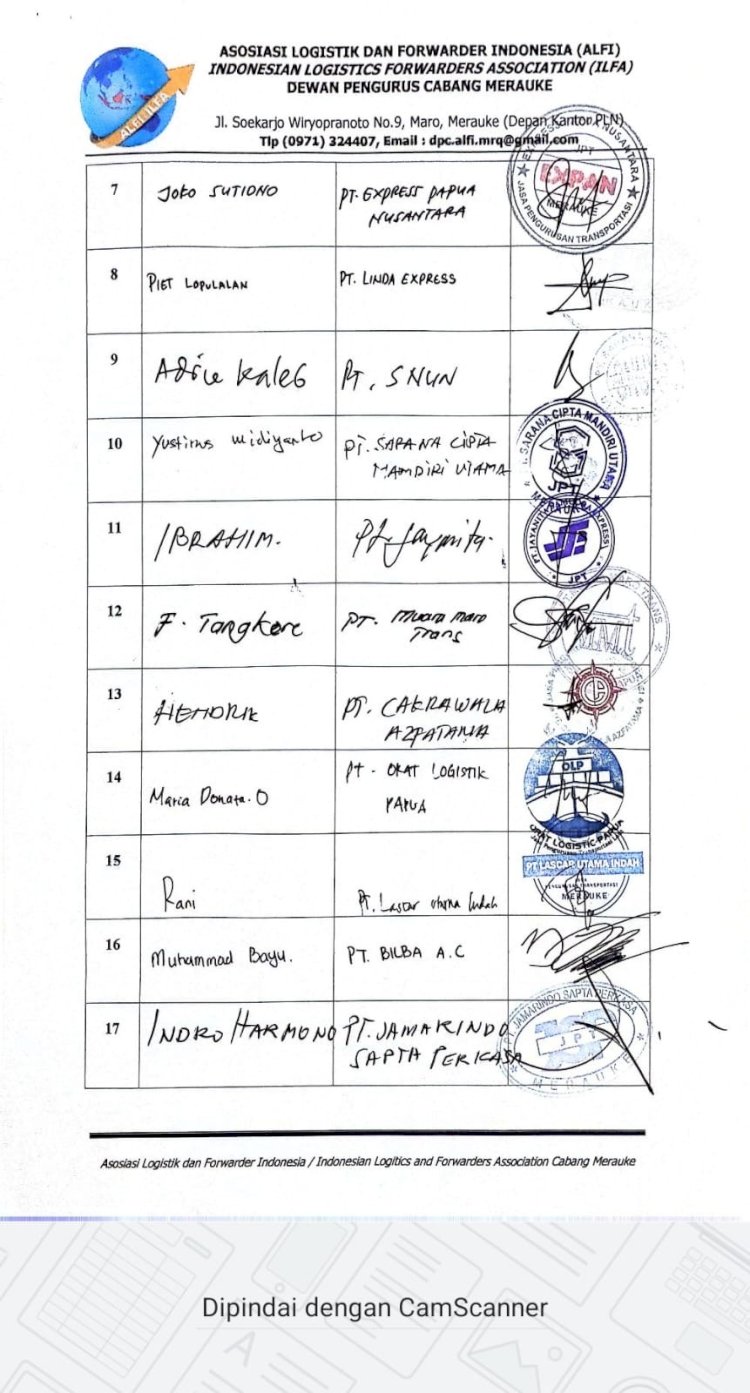 ASOSIASI LOGISTIK DAN FORWARDER INDONESIA (ALFI)
INDONESIAN LOGISTICS FORWARDERS ASSOCIATION (ILFA)
DEWAN PENGURUS CABANG MERAUKE
ALFI/ILFA
Jl. Soekarjo Wiryopranoto No.9, Maro, Merauke (Depan Kantor PLN)
Tlp (0971) 324407, Email : dpc.alfi.mrq@gmail.com
7 Joko SUTIONO PT. EXPRESS PAPUA
NUSANTARA
EXPRESS NUSANTARA
JPT
EXPAN
MERAUKE
JASA PENGURUSAN TRANSPORTASI
8 PIET LOPULALAN PT. LINDA EXPRESS
9 Adrie Kaleb PT. SNUN
10 Yustinus Widiyanto PT. SARANA CIPTA
MANDIRI UTAMA
SARANA CIPTA MANDIRI UTAMA
JPT
11 IBRAHIM. PT. Jayanita.
PT. JAYANITA EXPRESS
JPT
12 F. Tangkere PT. Muara Maro
Trans
13 HENDRIK PT. CAKRAWALA
AZPATAMA
14 Maria Donata. O Pt. ORAT LOGISTIK
PAPUA
OLP
ORAT LOGISTIC PAPUA
15 Rani Pt. Lascar Utama Indah
PT LASCAR UTAMA INDAH
PENGURUSAN TRANSPORTASI
MERAUKE
16 Muhammad Bayu. PT. BILBA A.C
17 INDRO HARMONO PT. JAMARINDO
SAPTA PERKASA
PT. JAMARINDO SAPTA PERKASA
JPT
MERAUKE
Asosiasi Logistik dan Forwarder Indonesia / Indonesian Logitics and Forwarders Association Cabang Merauke
Dipindai dengan CamScanner